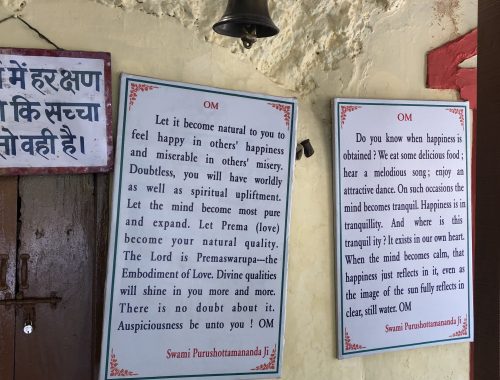 में हर क्षण
कि सच्चा
वही है।
OM
Let it become natural to you to
feel happy in others' happiness
and miserable in others' misery.
Doubtless, you will have worldly
as well as spiritual upliftment.
Let the mind become most pure
and expand. Let Prema (love)
become your natural quality.
The Lord is Premaswarupa—the
Embodiment of Love. Divine qualities
will shine in you more and more.
There is no doubt about it.
Auspiciousness be unto you ! OM
Swami Purushottamananda Ji
OM
Do you know when happiness is
obtained ? We eat some delicious food ;
hear a melodious song ; enjoy an
attractive dance. On such occasions the
mind becomes tranquil. Happiness is in
tranquillity. And where is this
tranquil ity ? It exists in our own heart.
When the mind becomes calm, that
happiness just reflects in it, even as
the image of the sun fully reflects in
clear, still water. OM
Swami Purushottamananda Ji